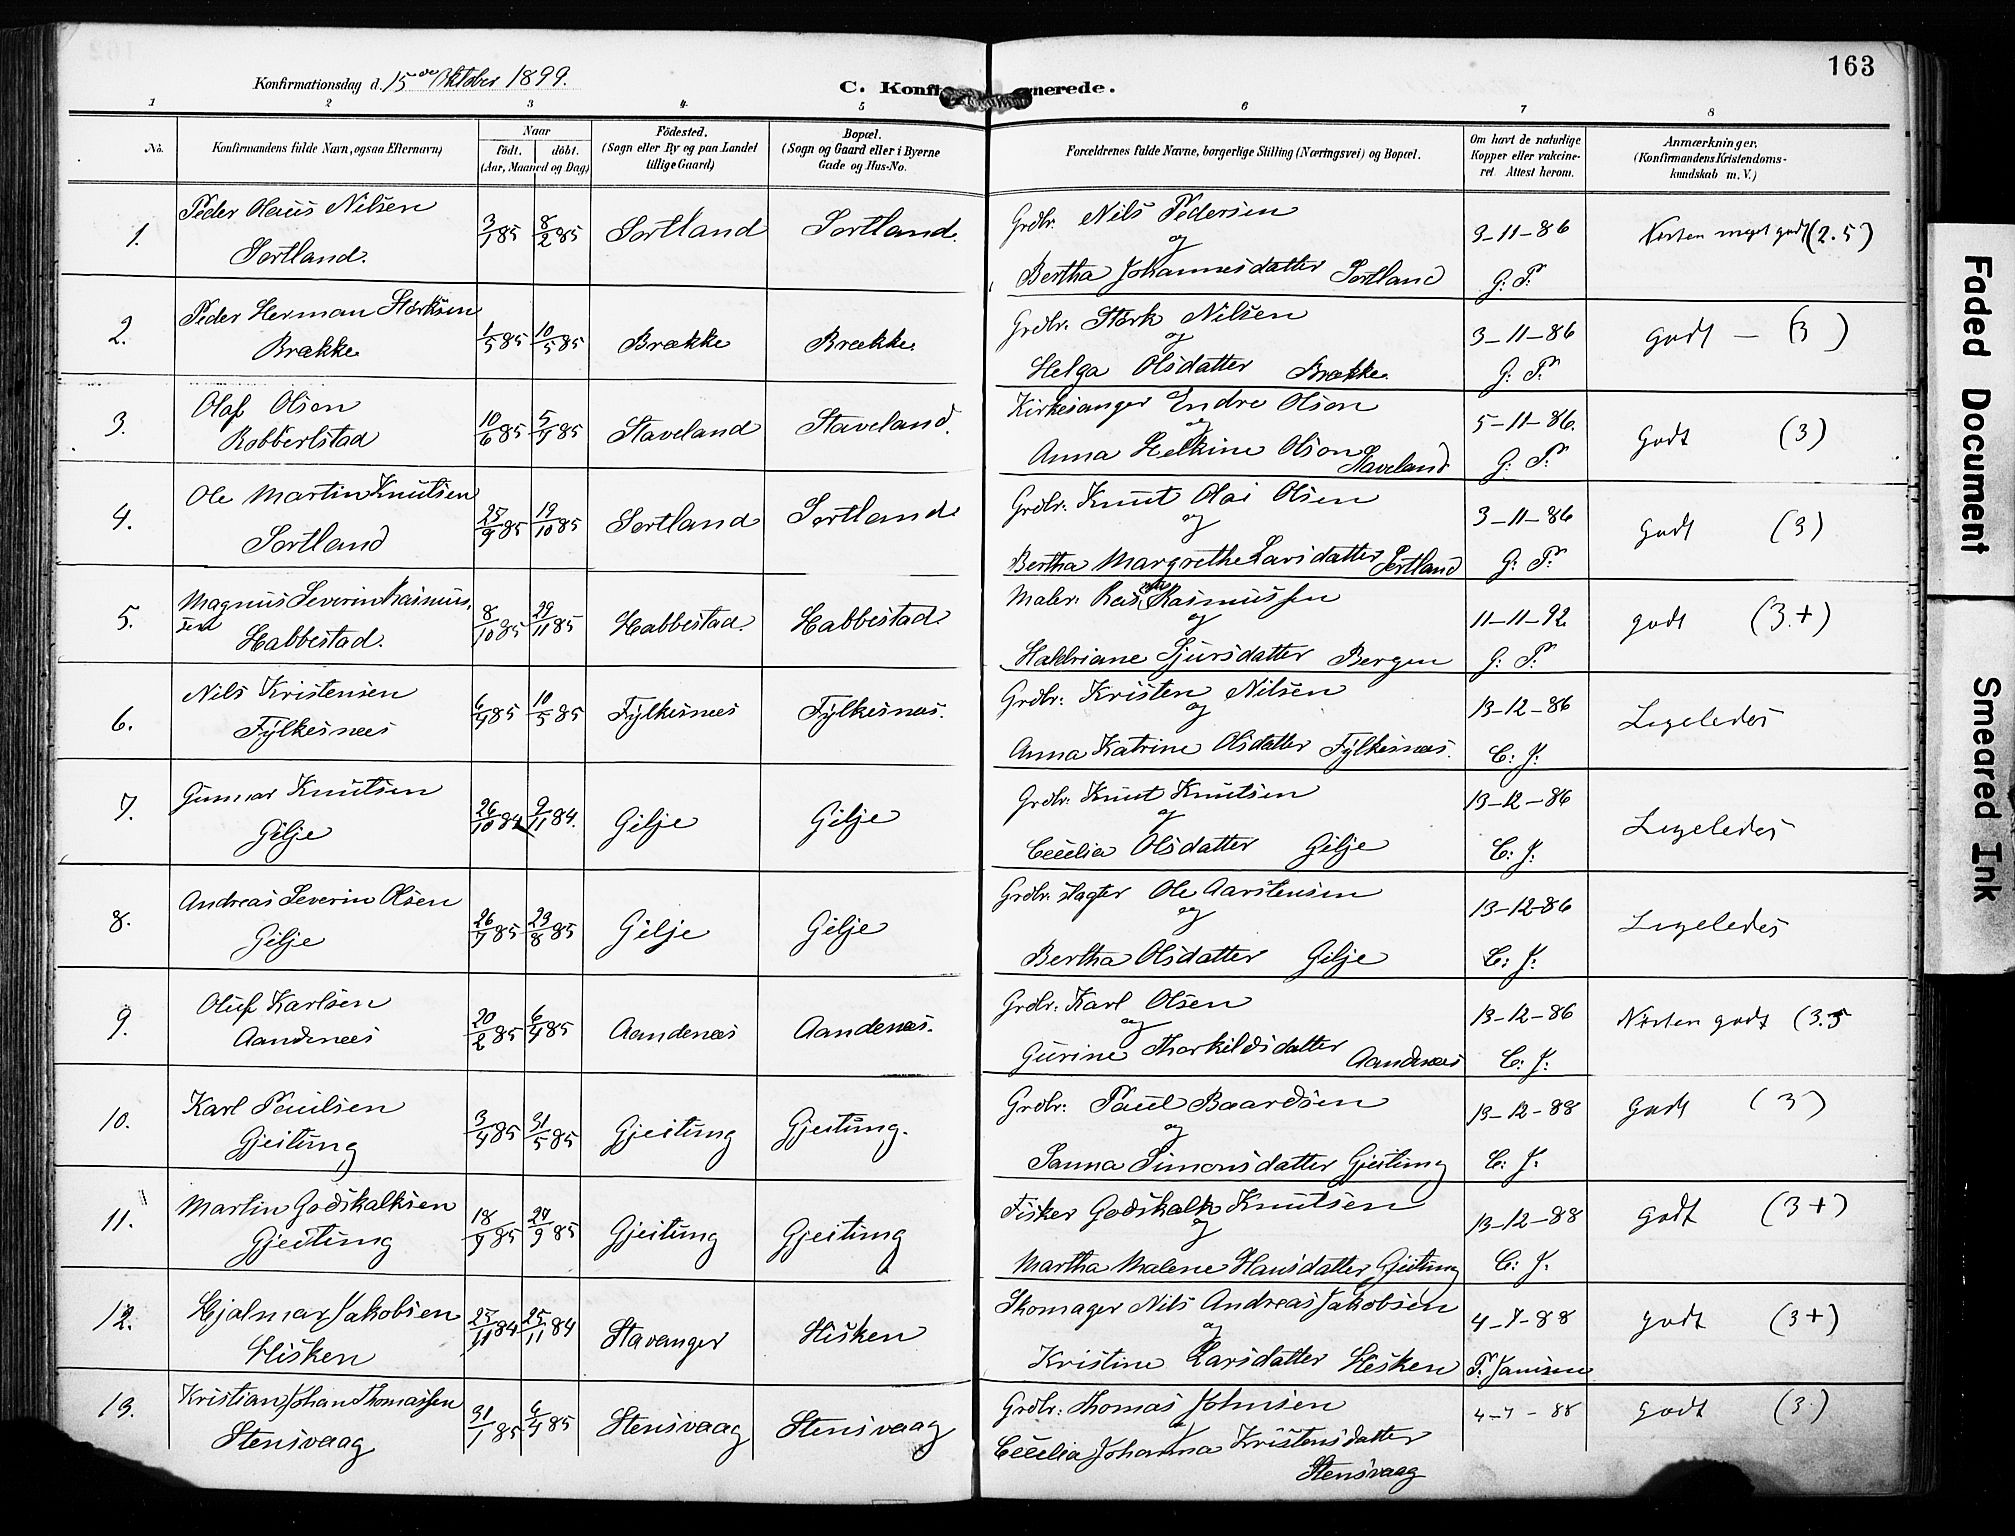 163
Konfirmationsdag d. 15de Oktober 1899.
C. Konfi nerede.
1 2 3 4 5 6 7 8
No.
Konfirmandens fulde Navn, ogsaa Efternavn)
Naar
født. døbt.
(Aar, Maaned og Dag)
Fødested.
(Sogn eller By og paa Landet
tillige Gaard)
Bopæl.
(Sogn og Gaard eller i Byerne
Gade og Hus-No.
Forældrenes fulde Navne, borgerlige Stilling (Næringsvei) og Bopæl.
Om havt de naturlige
Kopper eller vakcine-
ret. Attest herom.
Anmærkninger.
(Konfirmandens Kristendoms-
kundskab m. V.)
1. Peder Olaus Nilsen
Sortland.
3/1 85 8/2 85 Sortland Sortland.
Grdbr. Nils Pedersen
og
Bertha Johannesdatter Sortland
3-11-86
G: P:
Næsten meget godt (2.5)
2. Peder Herman Størksen
Brække
1/5 85 10/5 85 Brække Brække.
Grdbr. Størk Nilsen
og
Helga Olsdatter Brække.
3-11-86
G: P:
godt - (3)
3. Olaf Olsen
Robberstad
10/6 85 5/7 85 Staveland Staveland.
Kirkesanger Endre Olson
og
Anna Helkine Olson Staveland
5-11-86.
G: P:
Godt (3)
4. Ole Martin Knutsen
Sortland
25/9 85 19/10 85 Sortland Sortland
Grdbr. Knut Olai Olsen
og
Bertha Margrethe Larsdatter Sortland
3-11-86
G: P:
Godt (3)
5. Magnus Severin Rasmus-
sen
Habbestad.
8/10 85 29/11 85 Habbestad. Habbestad
Maler. Rasmus Rasmussen
og
Haldriane Sjursdatter Bergen
11-11-92
G: P:
godt (3+)
6. Nils Kristensen
Fylkesnæs
6/4 85 10/5 85 Fylkesnæs Fylkesnæs.
Grdbr: Kristen Nilsen
og
Anna Katrine Olsdatter Fylkesnæs.
13-12-86
C: J:
Ligeledes
7. Gunnar Knutsen
Gilje
26/10 84 9/11 84. Gilje Gilje
Grdbr. Knut Knutsen
og
Cecilia Olsdatter Gilje
13-12-86
C: J:
Ligeledes
8. Andreas Severin Olsen
Gilje
26/7 85 23/8 85 Gilje Gilje
Grdbr. slagter Ole Aarstensen
og
Bertha Olsdatter Gilje
13-12-86
C: J:
Ligeledes
9. Oluf Karlsen
Aandenæs
20/2 85 6/4 85 Aandenæs Aandenæs.
Grdbr. Karl Olsen
og
Gurine Thorkildsdatter Aandenæs
13-12-86
C: J:
Næsten godt (3.5
10. Karl Paulsen
Gjeitung
3/4 85 31/5 85 Gjeitung Gjeitung.
Grdbr: Paul Baardsen
og
Sanna Simonsdatter Gjeitung
13-12-88
C: J:
Godt (3)
11. Martin Godskalksen
Gjeitung
18/7 85 27/9 85 Gjeitung Gjeitung
Fisker Godskalk Knutsen
og
Martha Malene Hansdatter Gjeitung
13-12-88
C: J.
godt (3+)
12. Hjalmar Jakobsen
Hisken
23/11 84 25/11 84 Stavanger Hisken
Skomager Nils Andreas Jakobsen
og
Kristine Larsdatter Hisken
4-7-88
P: Jansen
godt (3+)
13. Kristian Johan Thomassen
Stensvaag
31/1 85 6/4 85 Stensvaag Stensvaag
Grdbr: Thomas Johnsen
og
Cecelia Johanna Kristensdatter
Stensvaag
4-7-88
godt (3)
Faded Document
Smeared Ink